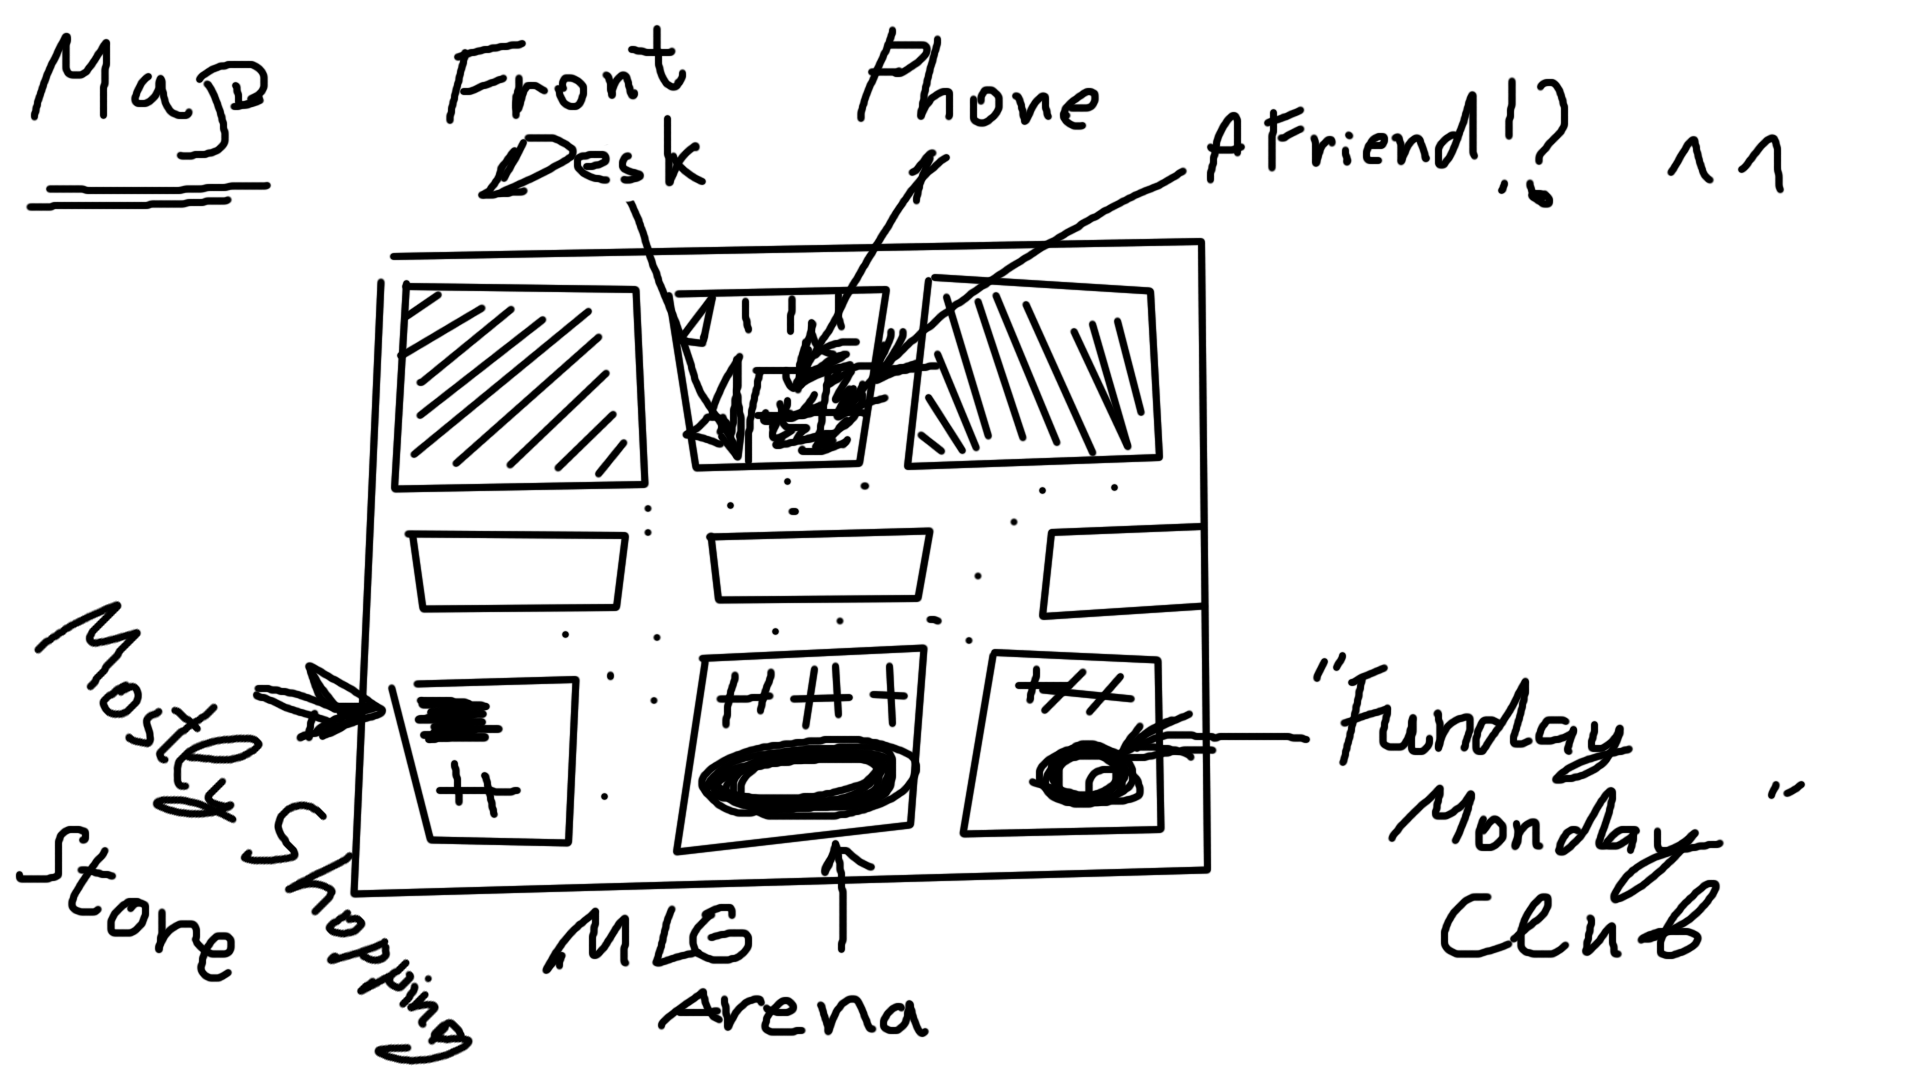 Map
Front
Desk
Phone
A Friend!?
^^
Mostly Shopping
Store
MLG
Arena
"Funday
Monday
Club"